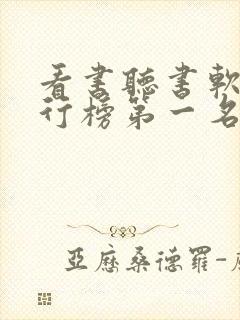 看書聽書軟
行榜第一名
亞歷桑德羅-